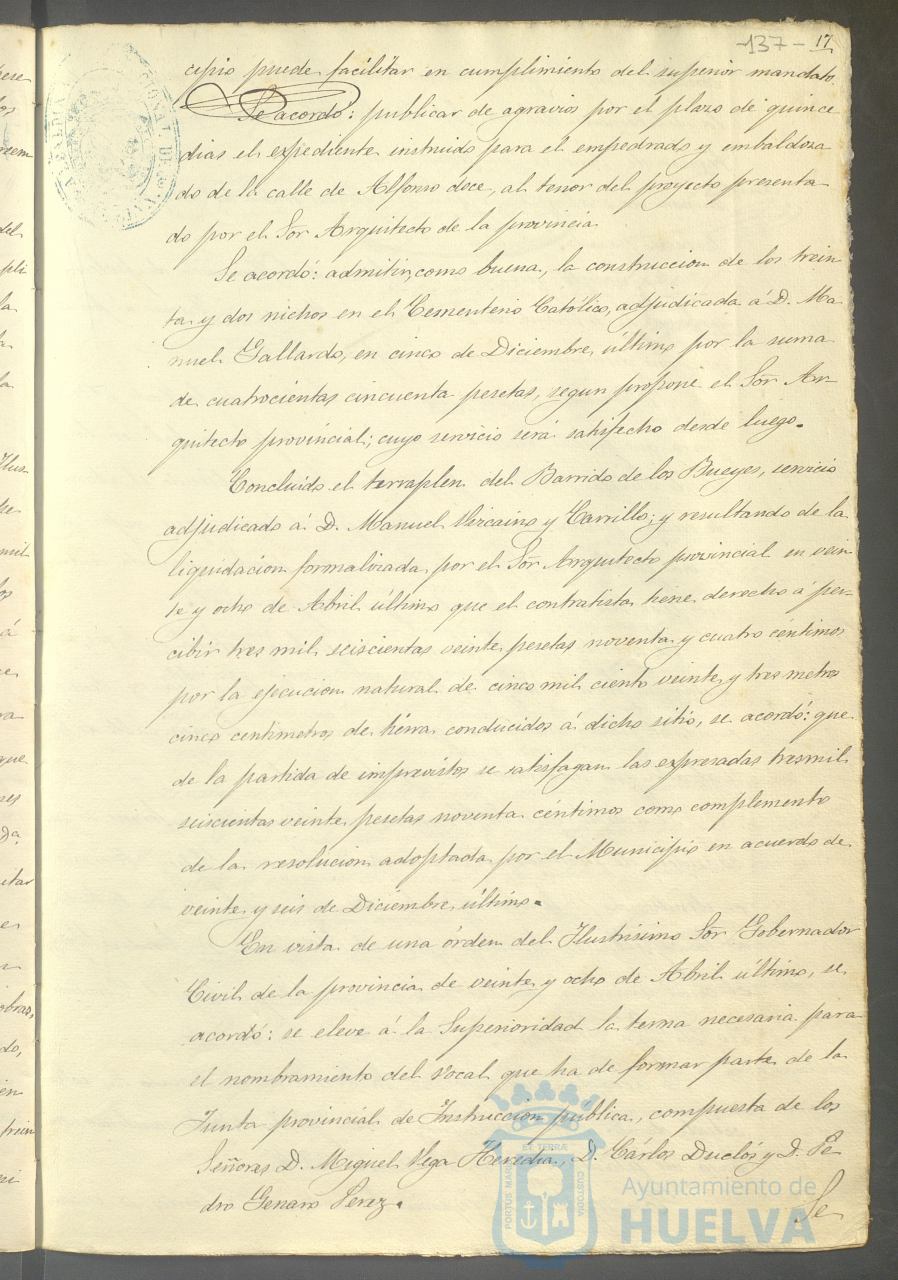 -137- 17
cipio puede facilitar en cumplimiento del superior mandato.
Se acordó: publicar de agravios por el plazo de quince
dias el expediente instruido para el empedrado y embaldosa-
do de la calle de Alfonso doce, al tenor del proyecto presenta-
do por el Sor Arquitecto de la provincia.
Se acordó: admitir, como buena, la construccion de los trein-
ta y dos nichos en el Cementerio Católico, adjudicada á D. Ma-
nuel Gallardo, en cinco de Diciembre último por la suma
de cuatrocientas cincuenta pesetas, segun propone el Sor Ar-
quitecto provincial; cuyo servicio será satisfecho desde luego.
Concluido el terraplen del Barrido de los Bueyes, servicio
adjudicado á D. Manuel Vizcaino y Carrillo; y resultando de la
liquidacion formalizada por el Sor Arquitecto provincial en vein-
te y ocho de Abril último que el contratista tiene derecho á per-
cibir tres mil seiscientas veinte pesetas noventa y cuatro céntimos
por la ejecucion natural de cinco mil ciento veinte y tres metros
cinco centimetros de tierra conducidos á dicho sitio, se acordó: que
de la partida de imprevistos se satisfagan las expresadas tresmil
seiscientas veinte pesetas noventa céntimos como complemento
de la resolucion adoptada por el Municipio en acuerdo de
veinte y seis de Diciembre último.
En vista de una órden del Ilustrisimo Sor Gobernador
Civil de la provincia de veinte y ocho de Abril último, se
acordó: se eleve á la Superioridad la terna necesaria para
el nombramiento del vocal que ha de formar parte de la
Junta provincial de Instruccion pública, compuesta de los
Señores D. Miguel Vega Heredia, D. Cárlos Duclós y D. Pe-
dro Genaro Perez.
Se
Ayuntamiento de
HUELVA